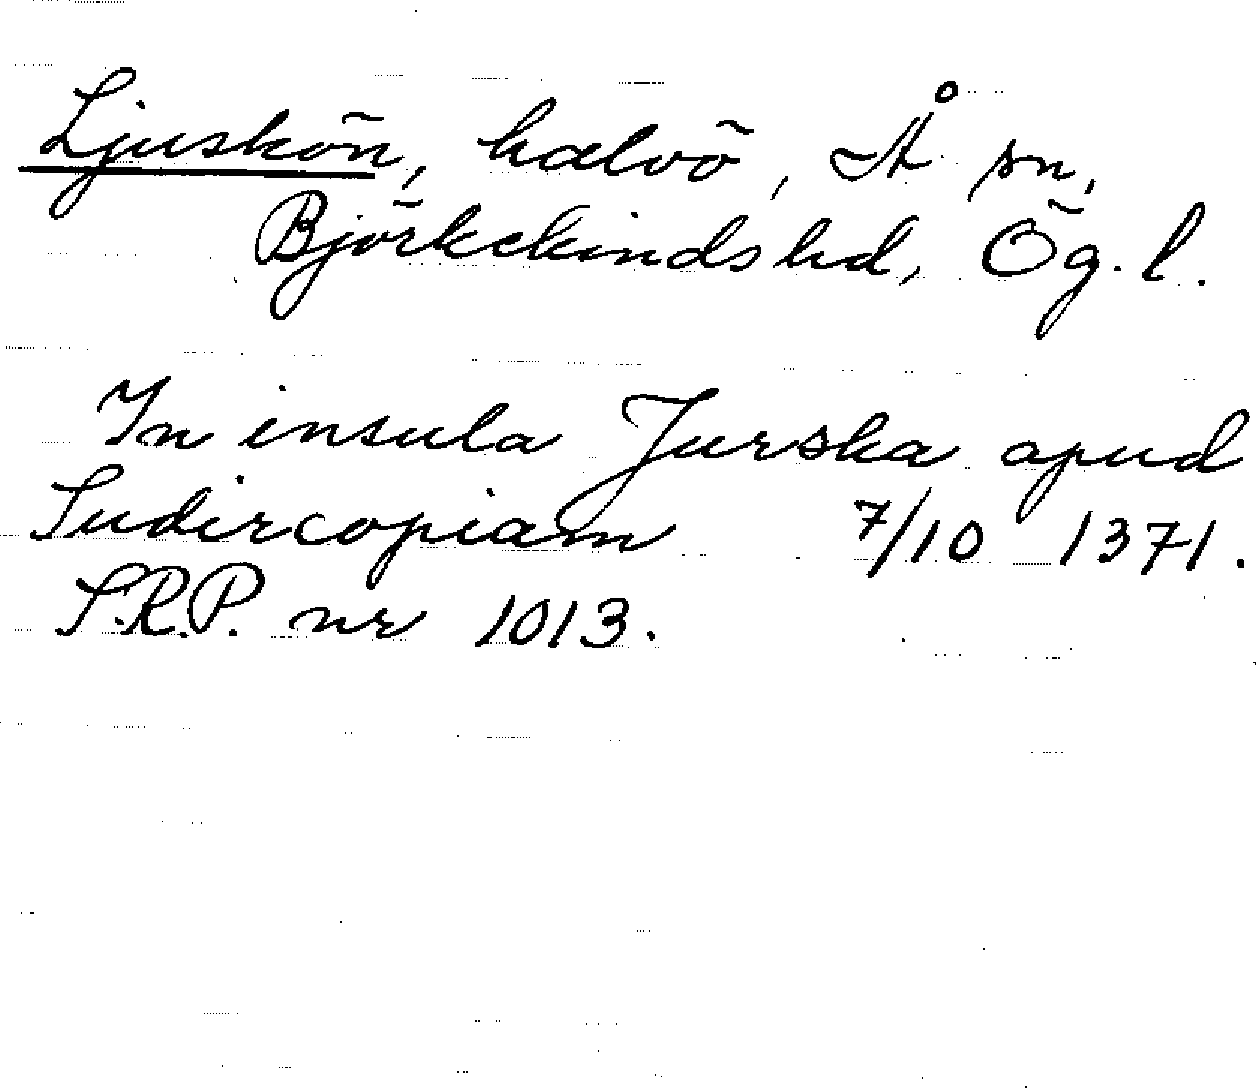 Ljuskön, halvö, Å sn,
Björkekinds hd, Ög. l.
In insula Jurska apud
Sudircopiam 7/10 1371.
S.R.P. nr 1013.